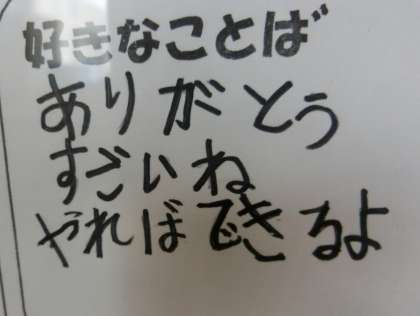 好きなことば
ありがとう
すごいね
やればできるよ